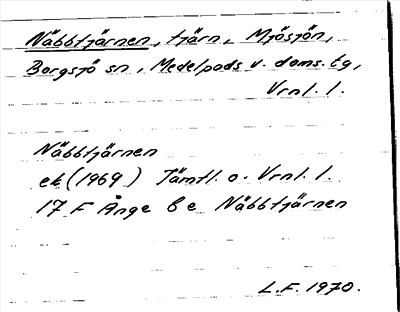 Näbbtjärnen, tjärn, Mjösjön,
Borgsjö sn, Medelpads v. doms. tg,
Vrnl. l.
Näbbtjärnen
ek (1969) Jämtl. o. Vrnl. l.
17 F Ånge 6 e Näbbtjärnen
L.F. 1970.